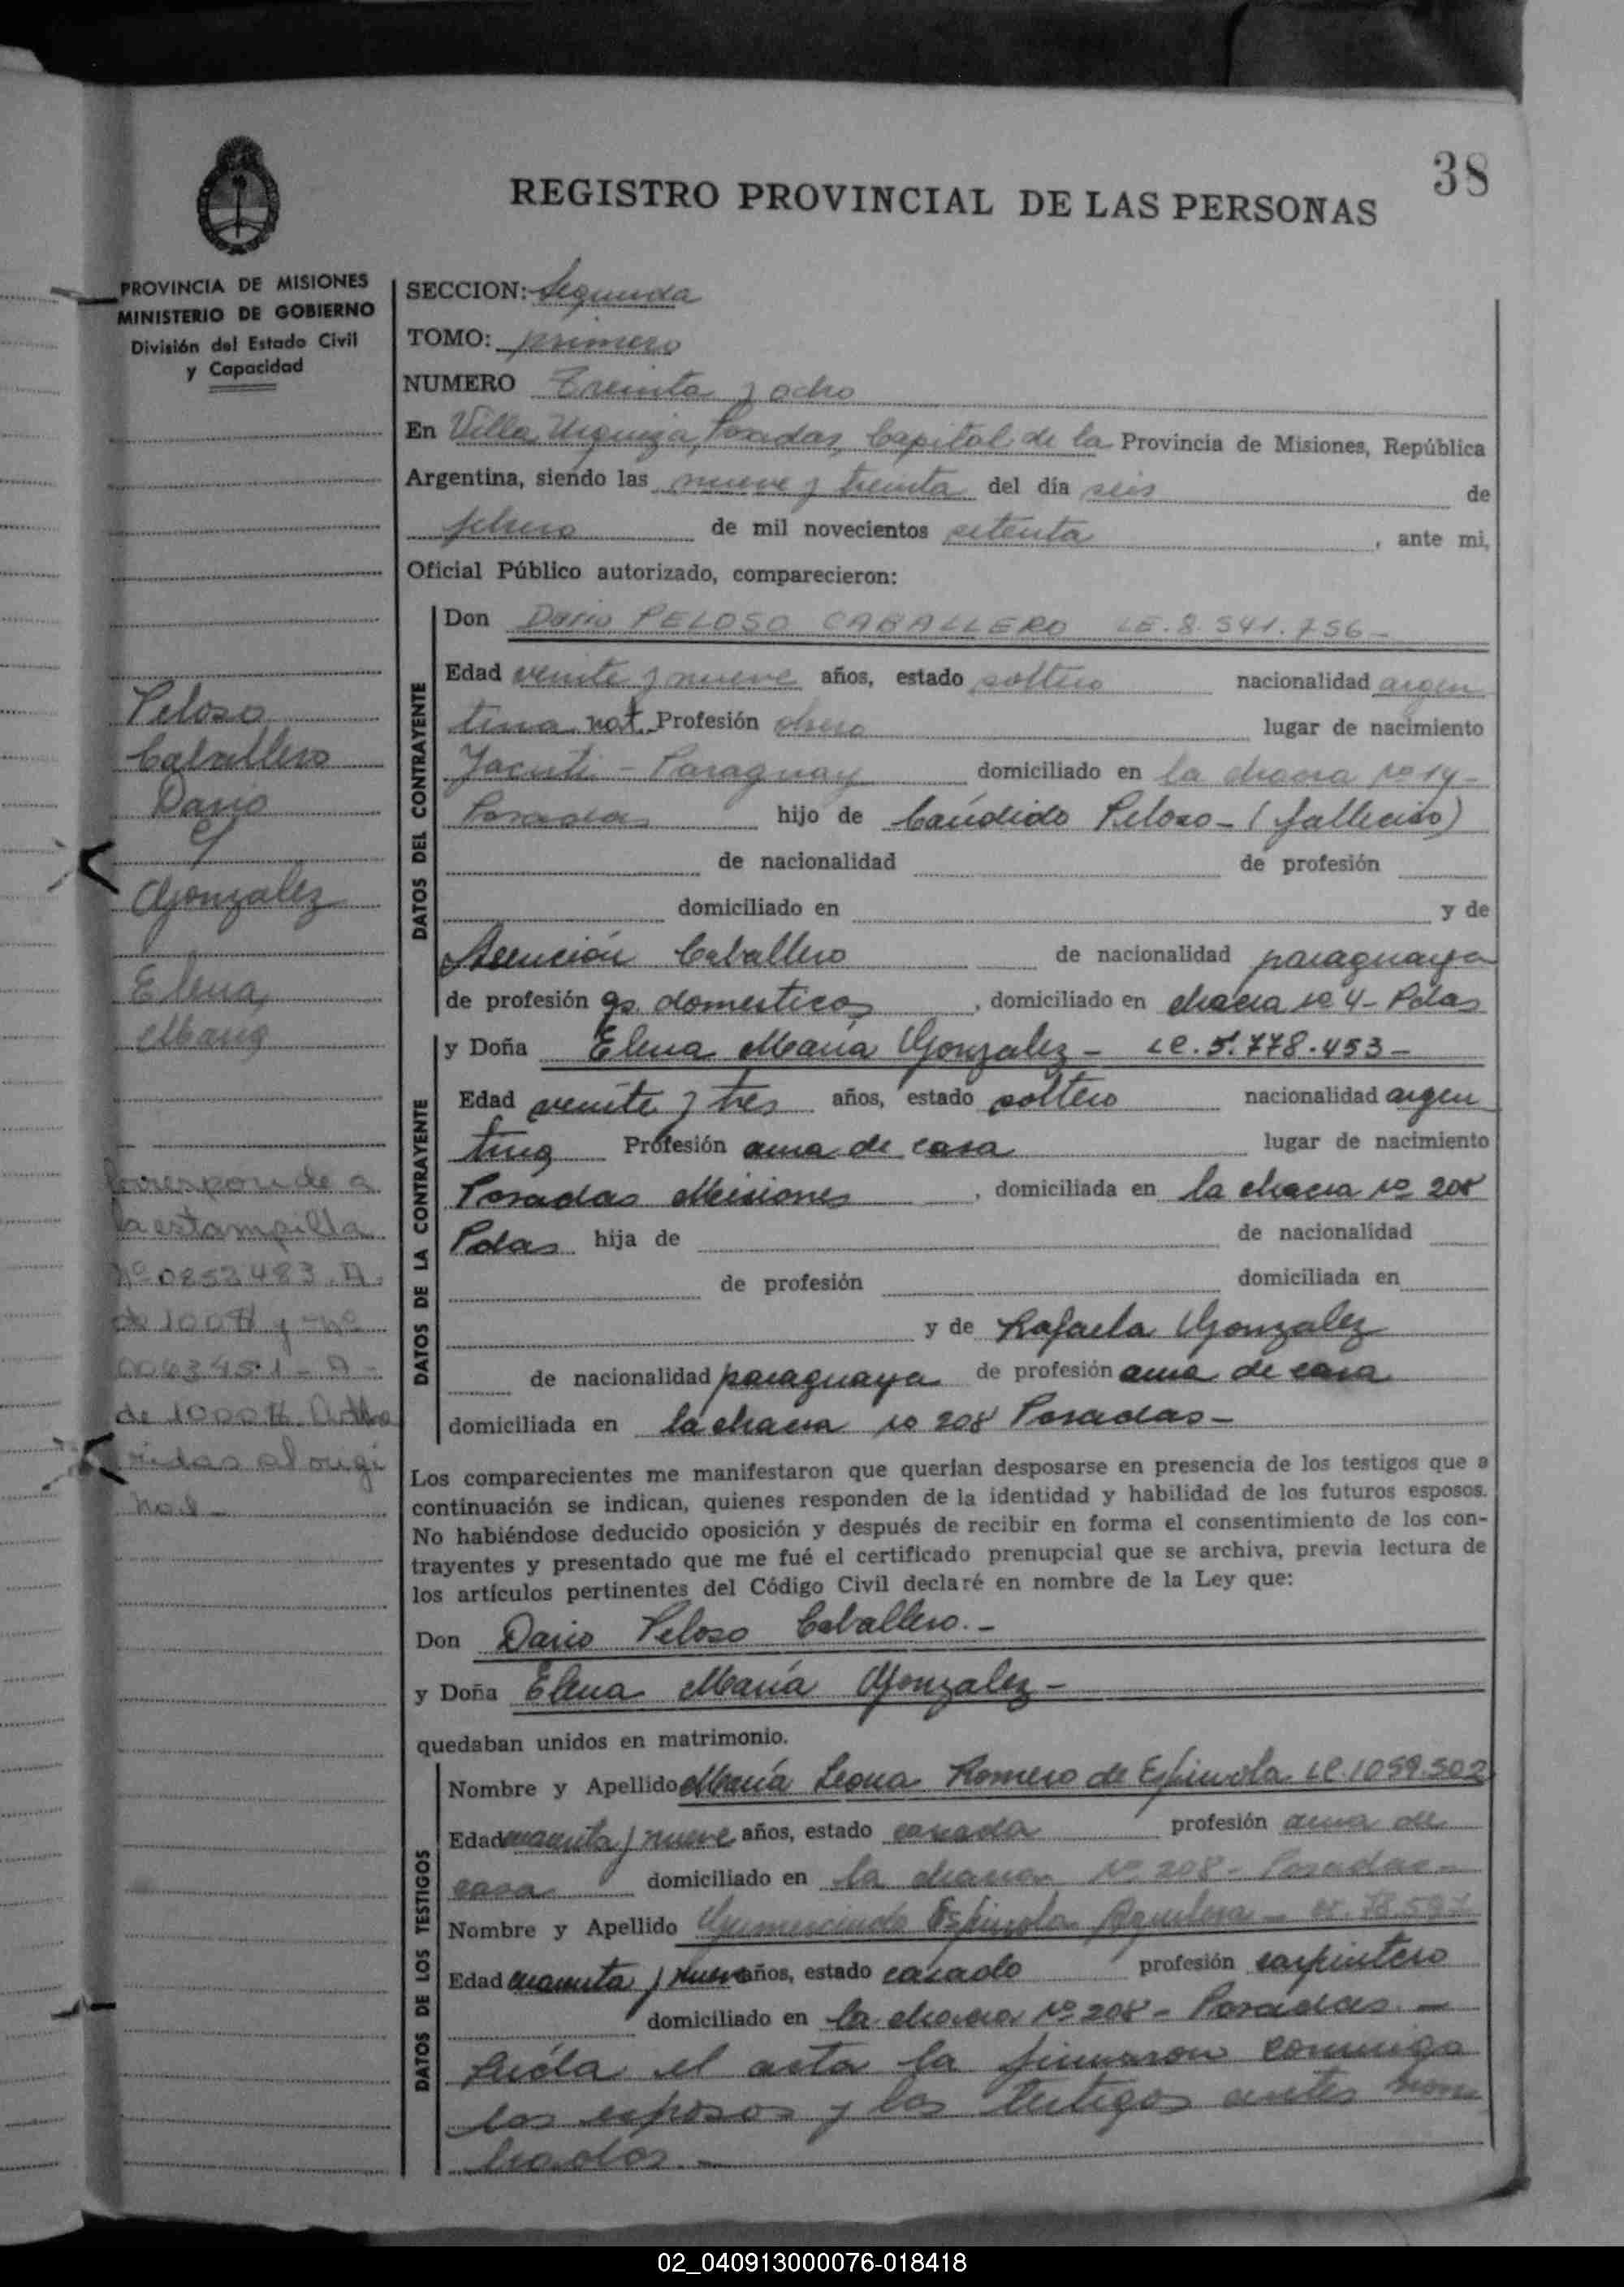 38
REGISTRO PROVINCIAL DE LAS PERSONAS
PROVINCIA DE MISIONES
MINISTERIO DE GOBIERNO
División del Estado Civil
y Capacidad
Peloso
Caballero
Dario
y
Gonzalez
Elena
Maria
Corresponde a
la estampilla
Nº 0252483 A.
de 100 y nº
de 1000
al origi
nal -
SECCION: Segunda
TOMO: primero
NUMERO Treinta y ocho
En Villa Urquiza, Posadas, Capital de la Provincia de Misiones, República
Argentina, siendo las nueve y treinta del día seis de
febrero de mil novecientos setenta, ante mi,
Oficial Público autorizado, comparecieron:
DATOS DEL CONTRAYENTE
Don Dario PELOSO CABALLERO LE. 8.341.756-
Edad veinte y nueve años, estado soltero nacionalidad argen
tina nat. Profesión obrero lugar de nacimiento
Paraguay domiciliado en la chacra nº 14-
Posadas hijo de Cándido Peloso - (fallecido)
de nacionalidad de profesión
domiciliado en y de
Asención Caballero de nacionalidad paraguaya
de profesión qs. domesticos, domiciliado en chacra nº 4- Pdas
DATOS DE LA CONTRAYENTE
y Doña Elena María Gonzalez - LC. 5.778.453-
Edad veinte y tres años, estado soltero nacionalidad argen
tina Profesión ama de casa lugar de nacimiento
Posadas Misiones, domiciliada en la chacra nº 208
Pdas hija de de nacionalidad
de profesión domiciliada en
y de Rafaela Gonzalez
de nacionalidad paraguaya de profesión ama de casa
domiciliada en la chacra nº 208 Posadas-
Los comparecientes me manifestaron que querían desposarse en presencia de los testigos que a
continuación se indican, quienes responden de la identidad y habilidad de los futuros esposos.
No habiéndose deducido oposición y después de recibir en forma el consentimiento de los con-
trayentes y presentado que me fué el certificado prenupcial que se archiva, previa lectura de
los artículos pertinentes del Código Civil declaré en nombre de la Ley que:
Don Dario Peloso Caballero.-
y Doña Elena María Gonzalez-
quedaban unidos en matrimonio.
DATOS DE LOS TESTIGOS
Nombre y Apellido María Leona Romero de Espinola LC. 1059.502
Edad cuarenta y nueve años, estado casada profesión ama de
casa domiciliado en la chacra nº 208 - Posadas-
Nombre y Apellido Gumercindo Espinola
Edad cuarenta y nueve años, estado casado profesión carpintero
domiciliado en la chacra nº 208 - Posadas.-
Leída el acta la firmaron conmigo
los esposos y los testigos antes nom
brados.-
02_040913000076-018418